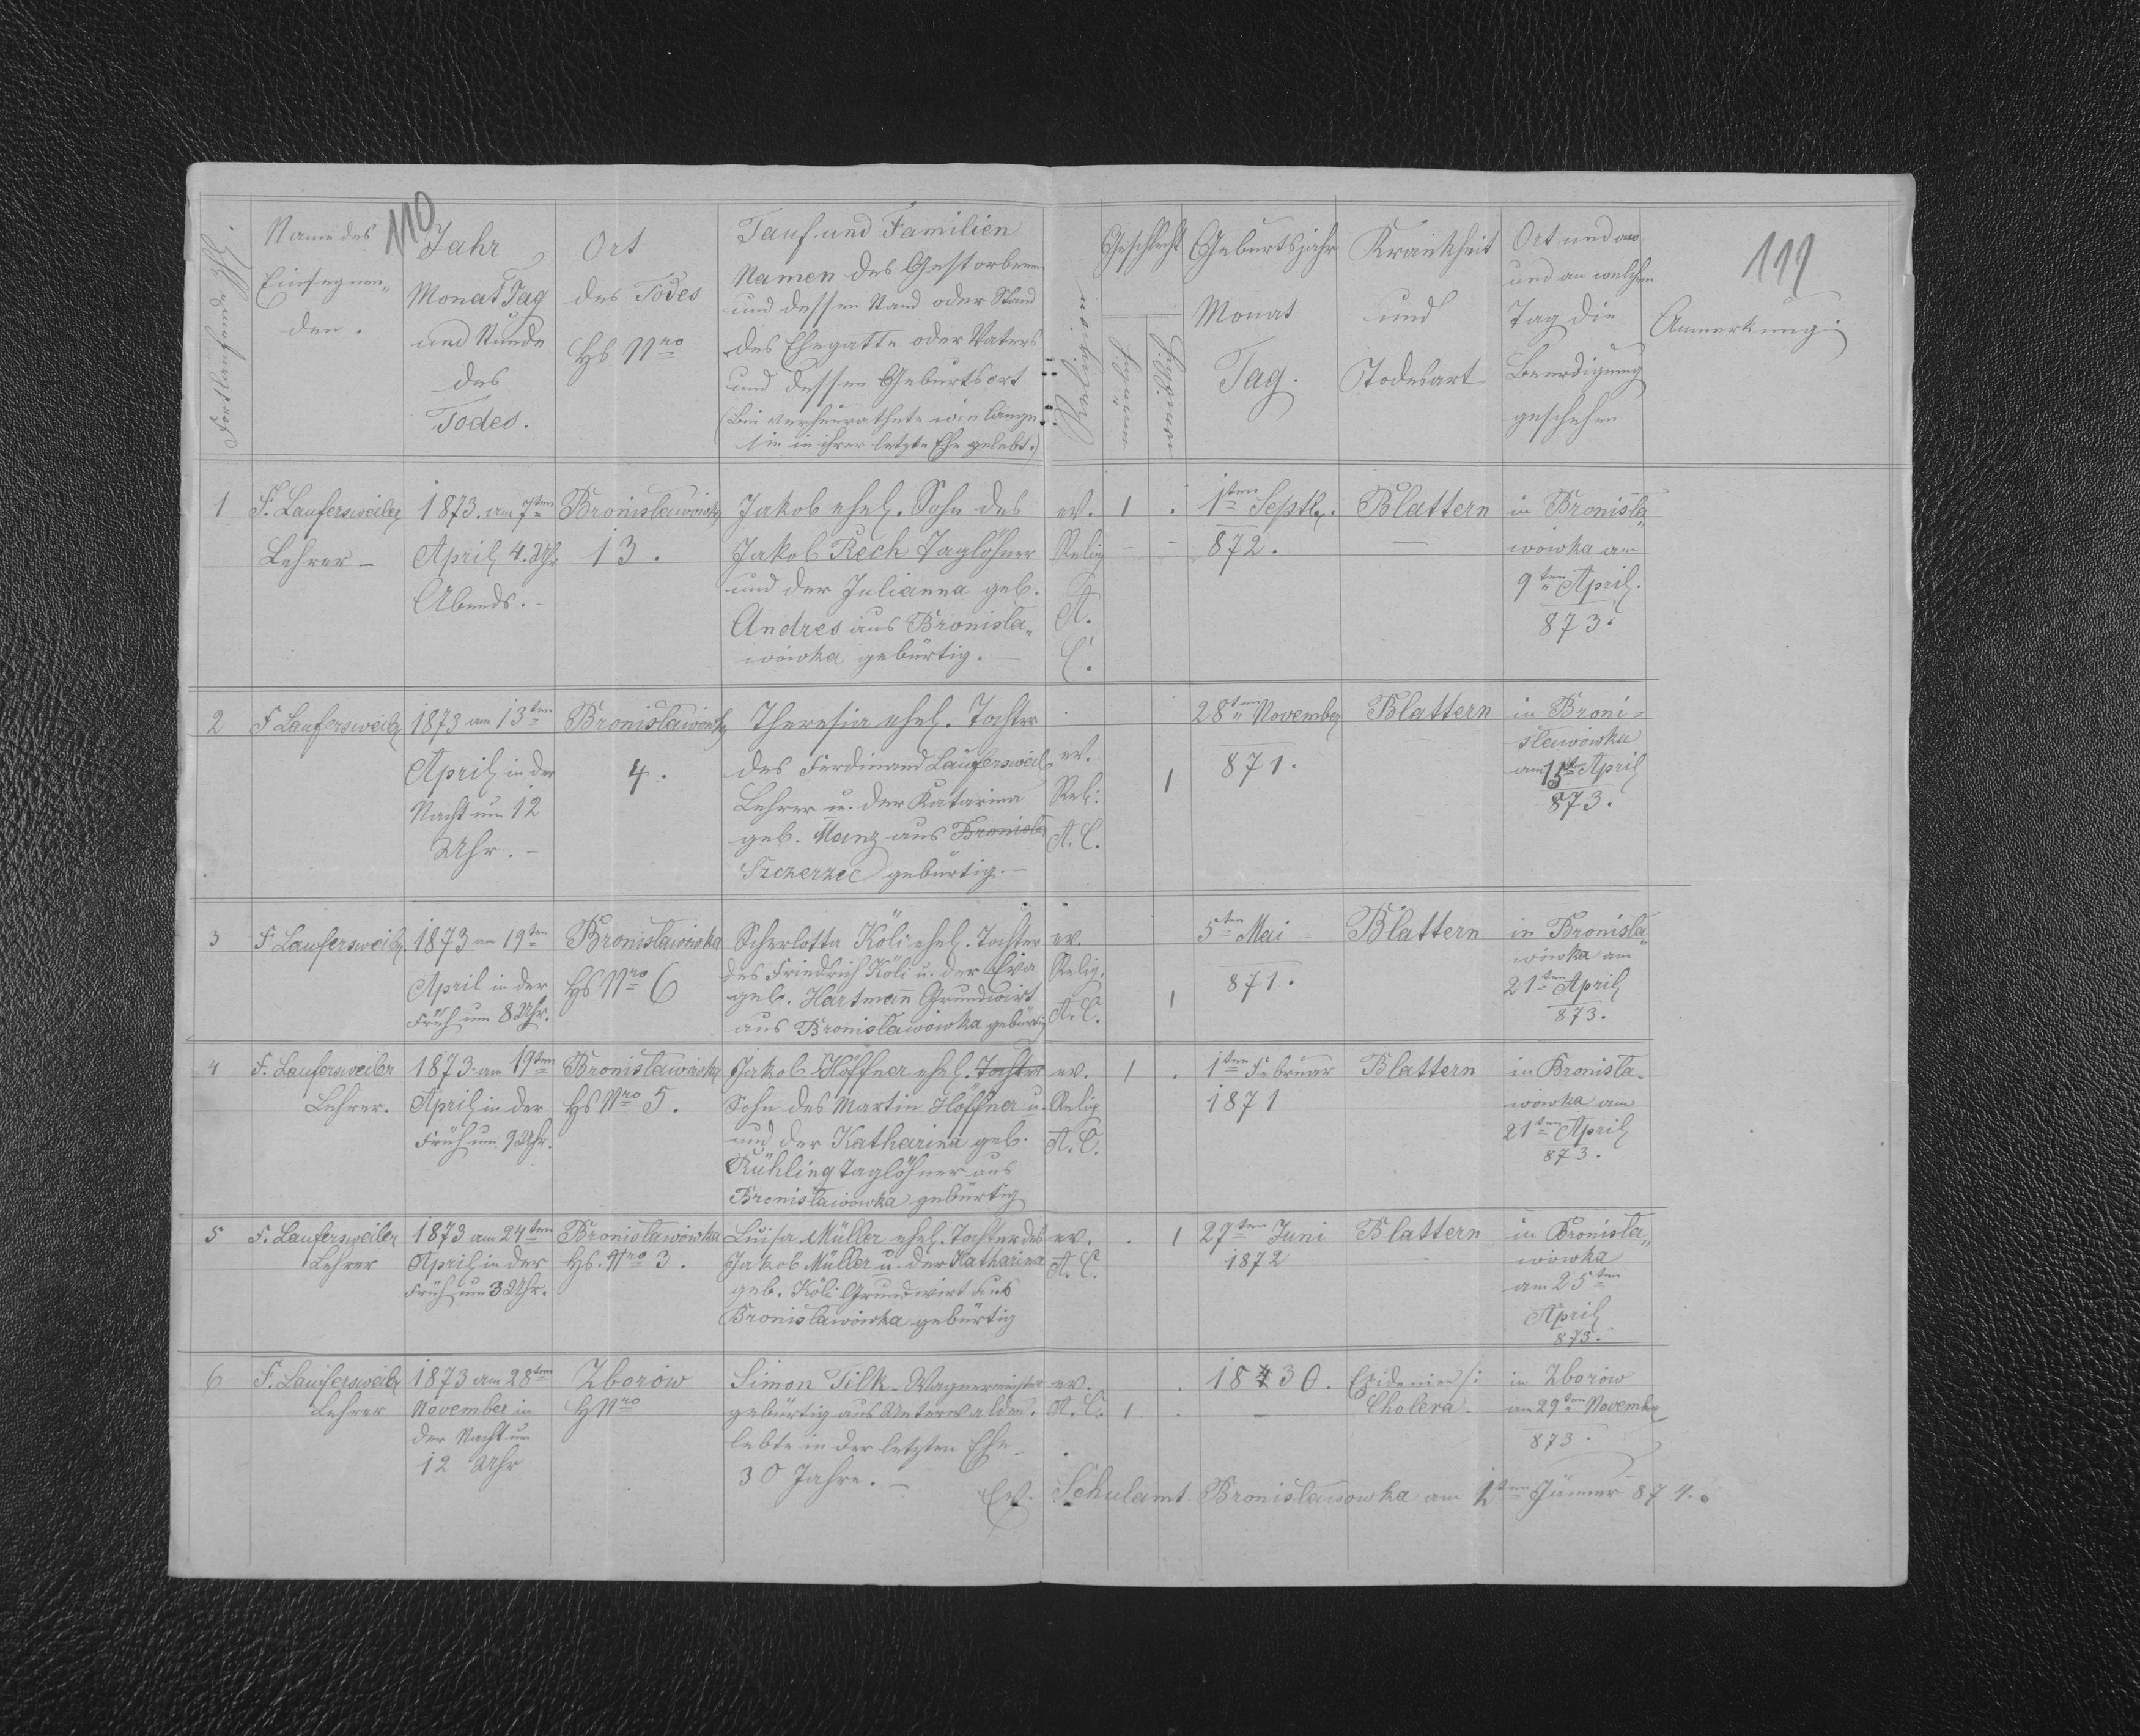 110
111
Fortlaufende Zhl.
Name des
Einsegnen„
den.
Jahr
Monat Tag
und Stunde
des
Todes.
Ort
des Todes
Hs Nro
Tauf und Familien
Namen des Gestorbenen
und dessen Stand oder Stand
des Ehegatte oder Vaters
und dessen Geburtsort
(Bei verheirathete wie lange
sie in ihrer letzte Ehe gelebt.)
Religion
Geschlecht
männl.
weibl.
Geburtsjahr
Monat
Tag.
Krankheit
und
Todesart
Ort und
und an welchem
Tag die
Beerdigung
geschehen
Anmerkung.
1
F. Laufersweiler
Lehrer –
1873. am 7ten
April 4. Uhr
Abends. –
Bronislawówka
13.
Jakob ehel. Sohn des
Jakob Rech Taglöhner
und der Julianna geb.
Andres aus Bronisla„
wówka gebürtig. –
ev.
Relig
A.
C.
1 .
1ten Septb.
872.
Blattern
–
in Bronisla„
wowka am
9ten April.
873.
2
F Laufersweiler
1873 am 13ten
April in der
Nacht um 12
Uhr. –
Bronislawówka
4.
Theresia ehel. Tochter
des Ferdinand Laufersweiler
Lehrer u. der Katarina
geb. Manz aus Bronisla
Szczerzec gebürtig. –
ev.
Reli.
A. C.
1
28ten November
871.
Blattern
in Broni=
slawówka
am 15ten April
873.
3
F Laufersweiler
1873 am 19ten
April in der
Früh um 8 Uhr.
Bronislawówka
Hs Nro 6
Scherlotta Köli ehel. Tochter
des Friedrich Köli u. der Eva
geb. Hartmann Grundwirt
aus Bronislawówka gebürtig
ev.
Relig.
A. C.
1
5ten Mai
871.
Blattern
in Bronisla„
wowka am
21ten April
873.
4
F. Laufersweiler
Lehrer.
1873 am 19ten
April in der
Früh um 9 Uhr.
Bronislawówka
Hs Nro 5.
Jakob Höffner ehel. Tochter
Sohn des Martin Höffner u.
und der Katharina geb.
Kühling Taglöhner aus
Bronislawówka gebürtig
ev.
Relig
A. C.
1 .
1ten Februar
1871
Blattern
in Bronisla„
wowka am
21ten April
873.
5
F. Laufersweiler
Lehrer
1873 am 24ten
April in der
Früh um 3 Uhr.
Bronislawówka
Hs. Nro 3.
Luisa Müller ehel. Tochter des
Jakob Müller u. der Katharina
geb. Köli Grundwirt aus
Bronislawówka gebürtig
ev.
A. C.
. 1
27ten Juni
1872
Blattern
in Bronisla„
wówka
am 25ten
April
873.
6
F. Laufersweiler
Lehrer
1873 am 28ten
November in
der Nacht um
12 Uhr
Zborów
H Nro
Simon Tilk Wagnermeister
gebürtig aus Unterwalden.
lebte in der letzten Ehe
30 Jahre. –
ev.
A. C.
1 .
1830.
–
Cholera.
in Zborów
am 29ten November
873.
Ev. Schulamt Bronislawowka am 1ten Jänner 874.